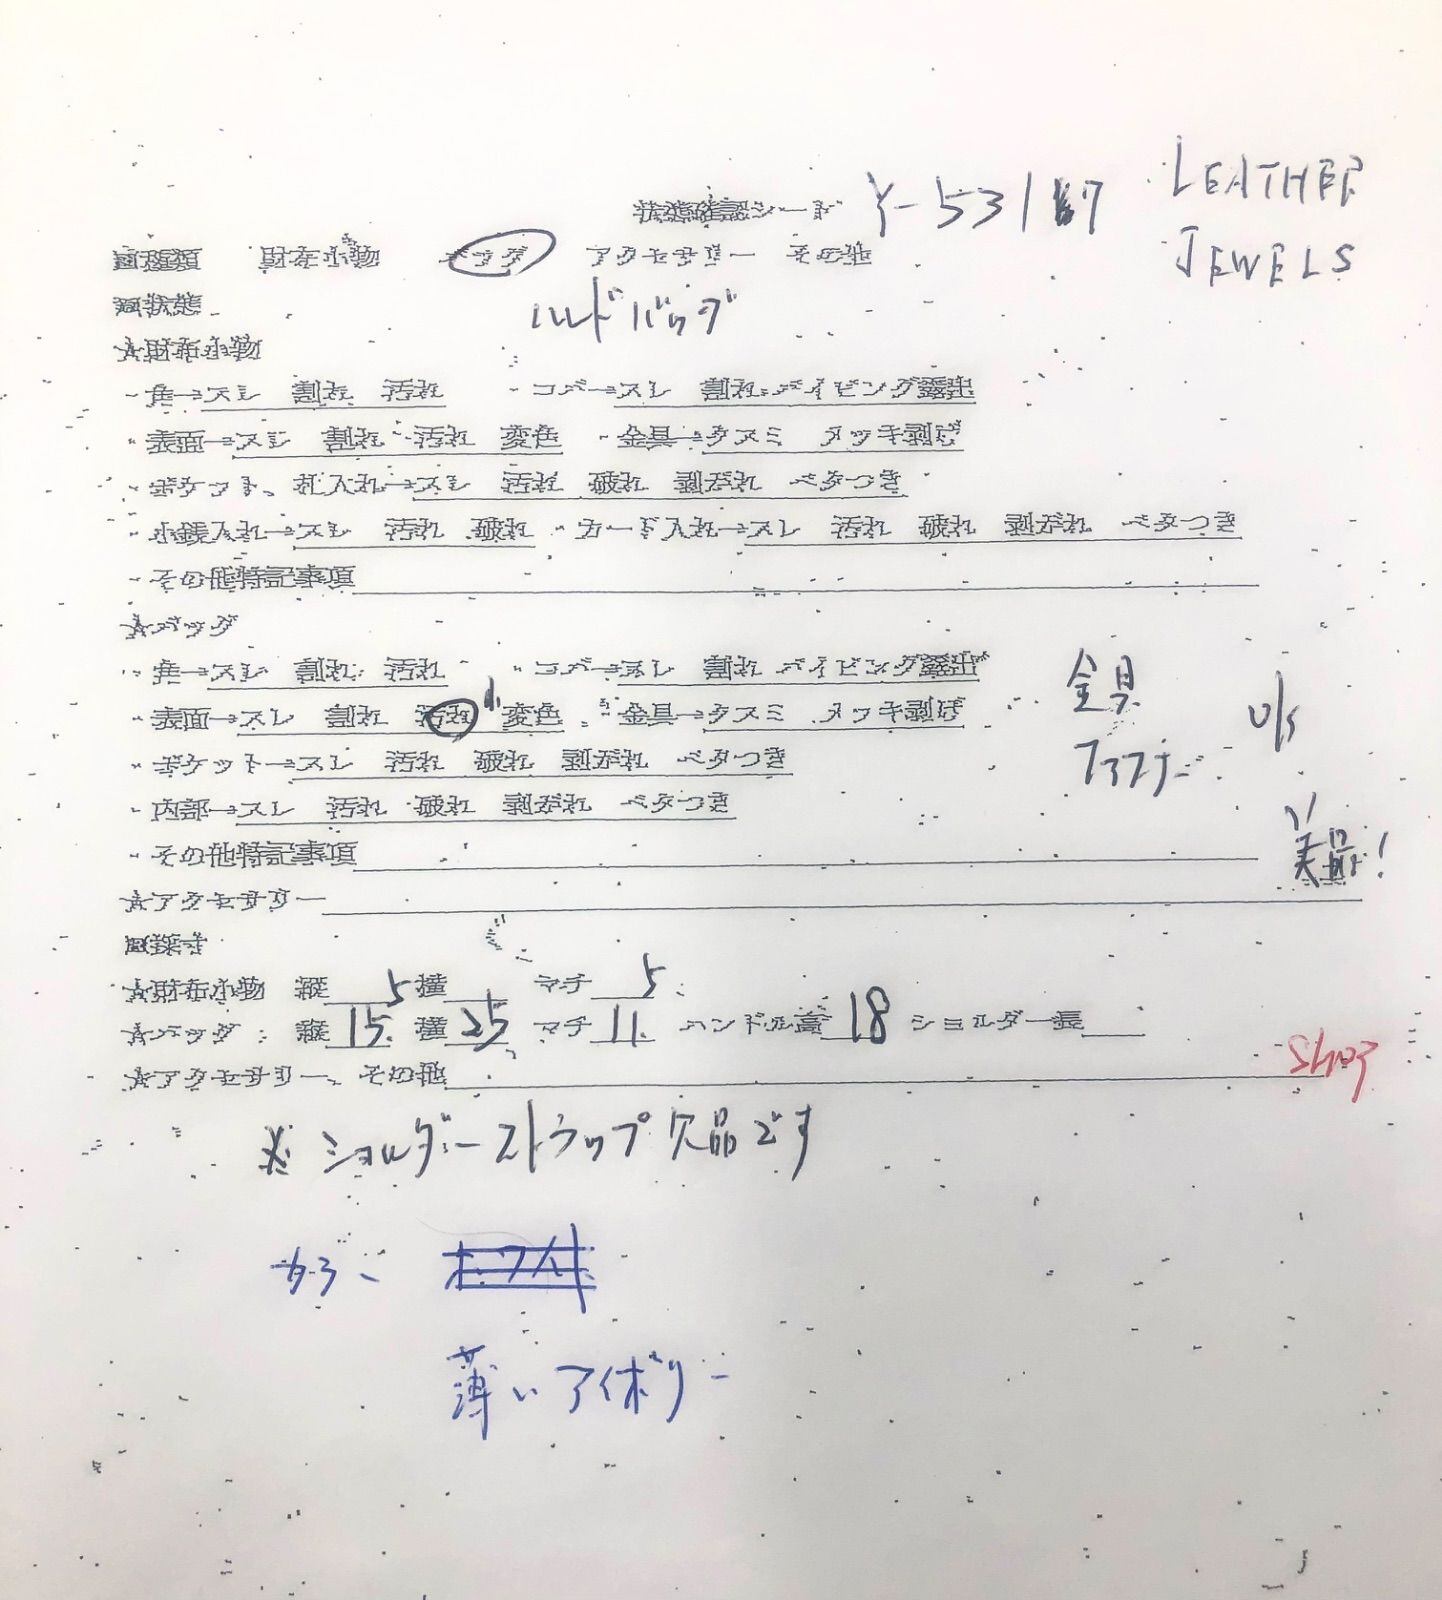 状態確認シート Y-53187 LEATHER
JEWELS
□種類 財布小物 バッグ アクセサリー その他
□状態 ハンドバッグ
☆財布小物
・角→スレ 割れ 汚れ ・コバ→スレ 割れ パイピング露出
・表面→スレ 割れ 汚れ 変色 ・金具→クスミ メッキ剥げ
・ポケット、札入れ→スレ 汚れ 破れ 剥がれ ベタつき
・小銭入れ→スレ 汚れ 破れ ・カード入れ→スレ 汚れ 破れ 剥がれ ベタつき
・その他特記事項
☆バッグ
・角→スレ 割れ 汚れ ・コバ→スレ 割れ パイピング露出
・表面→スレ 割れ 汚れ 小 変色 ・金具→クスミ メッキ剥げ
金具
ファスナー
・ポケット→スレ 汚れ 破れ 剥がれ ベタつき
・内部→スレ 汚れ 破れ 剥がれ ベタつき
・その他特記事項
美品!
☆アクセサリー
□採寸
☆財布小物 縦 5 横 マチ 5
☆バッグ 縦 15 横 25 マチ 11 ハンドル高 18 ショルダー長
☆アクセサリー、その他
※ショルダーストラップ欠品です
カラー
薄いアイボリー